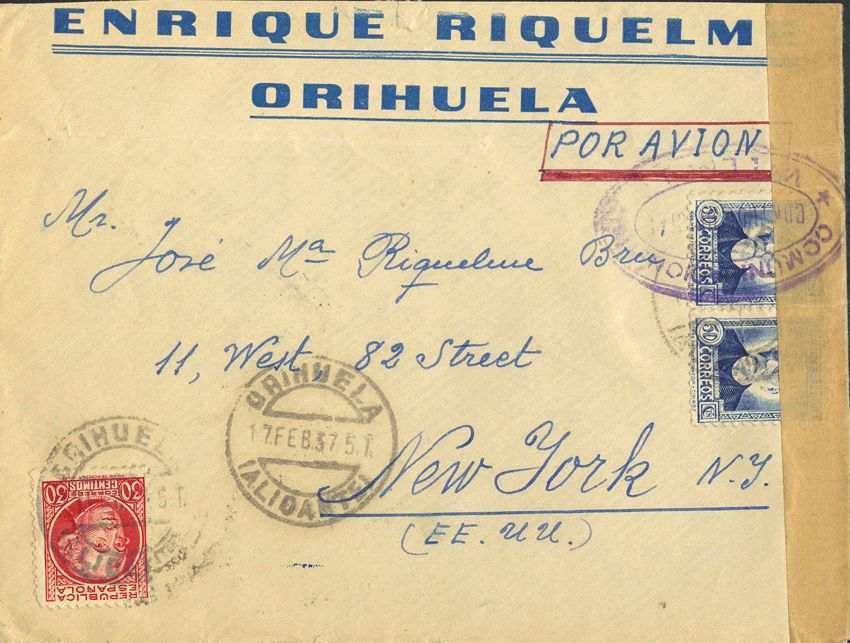 ENRIQUE RIQUELM
ORIHUELA
POR AVION
Mr.
José Mª Riquelme Bru
11, West, 82 Street
New York N.Y.
(EE. UU.)
ORIHUELA
17.FEB.37.5.T.
(ALICANTE)
ORIHUELA
5.T.
30
CORREOS
CENTIMOS
REPUBLICA
ESPAÑOLA
50
CORREOS
50
CORREOS